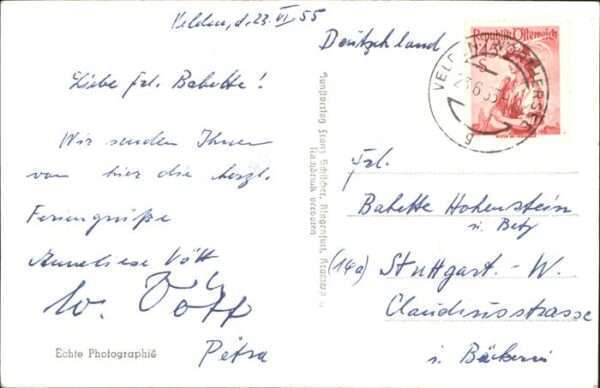 Velden, d. 23. VI 55
Liebe Frl. Babette!
Wir senden Ihnen
von hier die herzl.
Feriengrüße
Anneliese Vött
W. Vött
Petra
Echte Photographie
Deutschland
Republik Österreich
VELDEN
23.6.55
g
Kunstverlag Franz Schilcher, Klagenfurt,
Nachdruck verboten
Frl.
Babette Hohenstein
i. Betz
(14a) Stuttgart.-W.
Claudiusstrasse
i. Bäckerei